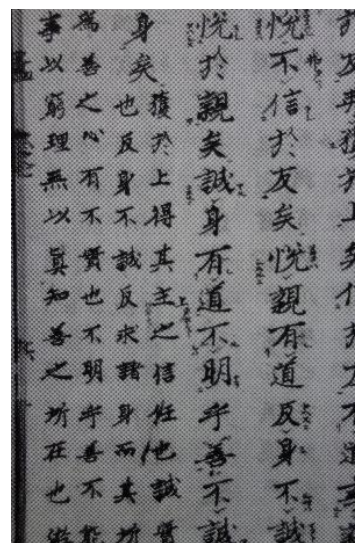 悅不信於友矣悅親有道反身不誠
悅於親矣誠身有道不明乎善不誠
身矣
獲於上得其主之信任也誠實
也反身不誠反求諸身而其所
為善之心有不實也不明乎善不能
事以窮理無以眞知善之所在也游